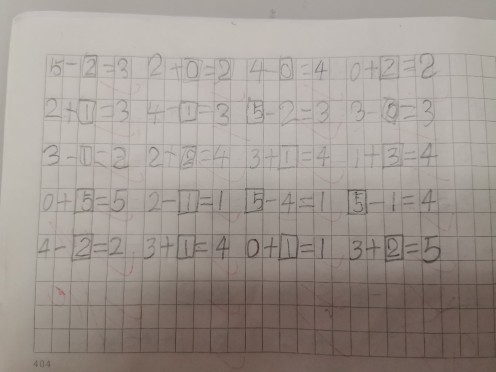 5-2=3 2+0=2 4-0=4 0+2=2
2+1=3 4-1=3 5-2=3 3-0=3
3-1=2 2+2=4 3+1=4 1+3=4
0+5=5 2-1=1 5-4=1 5-1=4
4-2=2 3+1=4 0+1=1 3+2=5
404